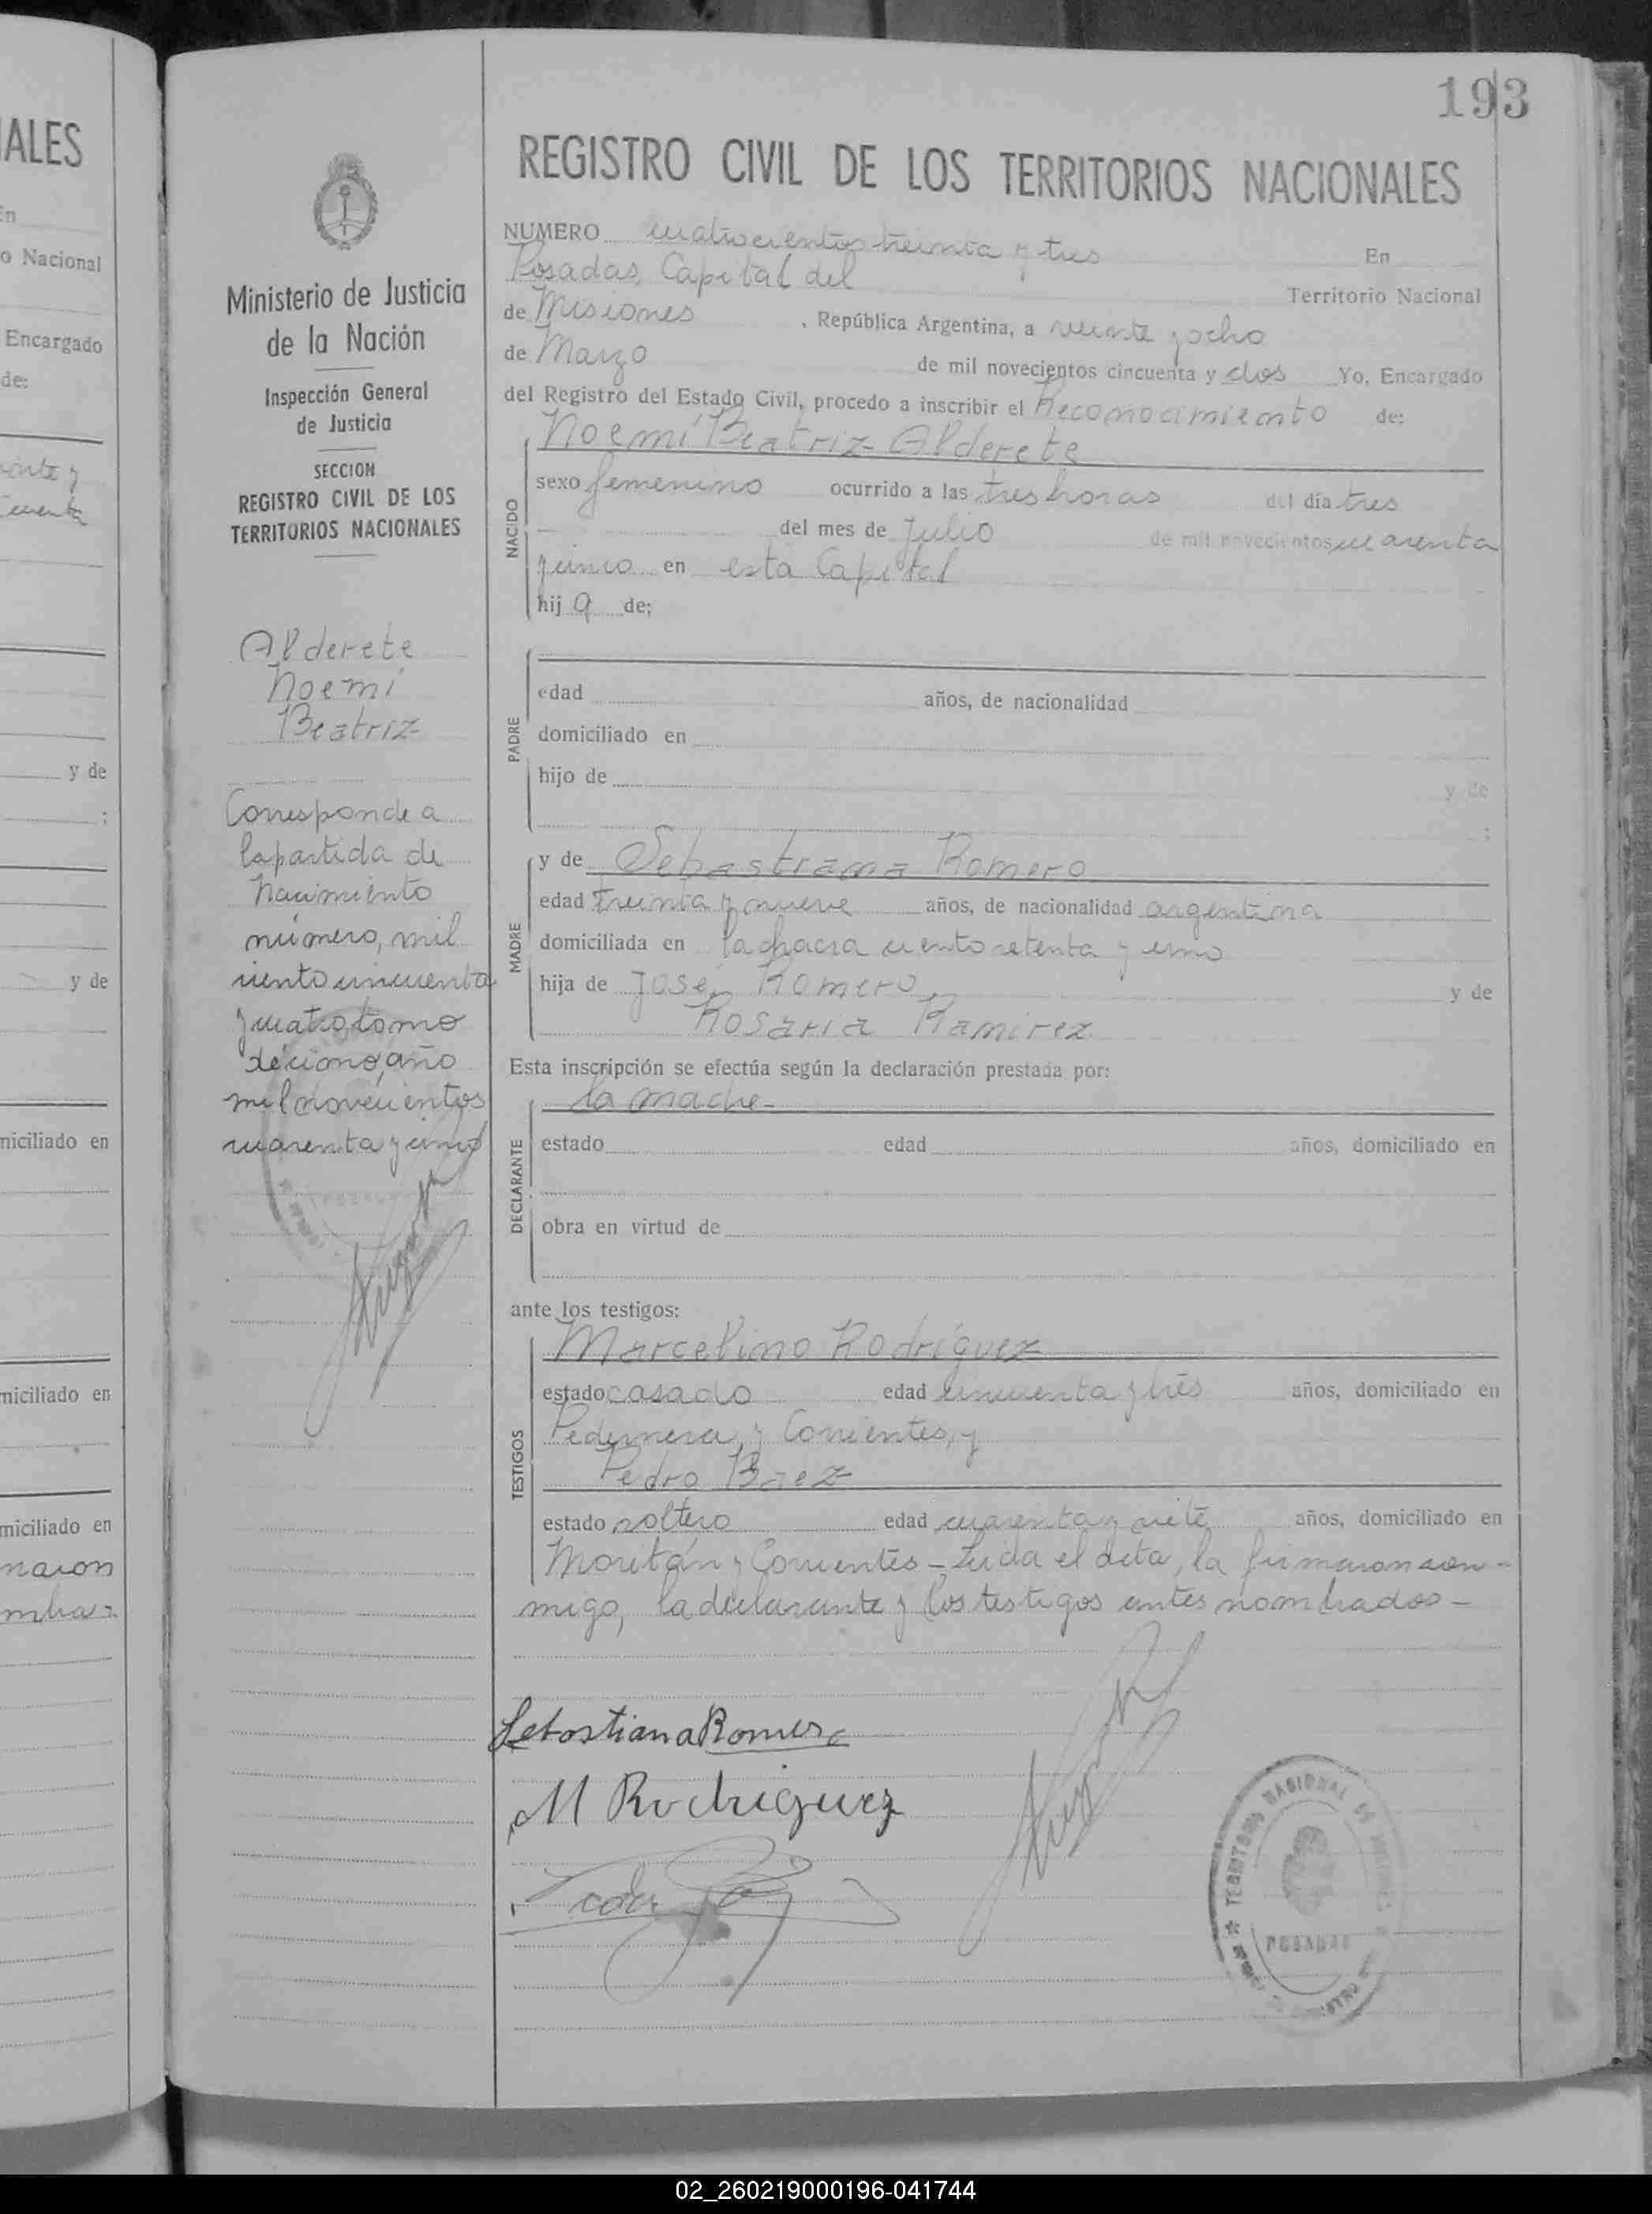 193
ALES
En
o Nacional
Encargado
de:
y de
;
y de
miciliado en
miciliado en
miciliado en
maron
Ministerio de Justicia
de la Nación
Inspección General
de Justicia
SECCION
REGISTRO CIVIL DE LOS
TERRITORIOS NACIONALES
Alderete
Noemí
Beatriz
Corresponde a
la partida de
Nacimiento
número, mil
ciento cincuenta
y cuatro tomo
décimo, año
mil novecientos
cuarenta y cinco
REGISTRO CIVIL DE LOS TERRITORIOS NACIONALES
NUMERO cuatrocientos treinta y tres En
Posadas, Capital del Territorio Nacional
de Misiones, República Argentina, a veinte y ocho
de Marzo de mil novecientos cincuenta y dos Yo, Encargado
del Registro del Estado Civil, procedo a inscribir el Reconocimiento de:
Noemí Beatriz Alderete
NACIDO
sexo femenino ocurrido a las tres horas del día tres
— del mes de Julio de mil novecientos cuarenta
y cinco en esta Capital
hija de;
PADRE
edad años, de nacionalidad
domiciliado en
hijo de y de
;
MADRE
y de Sebastiana Romero
edad Treinta y nueve años, de nacionalidad argentina
domiciliada en la chacra ciento setenta y uno
hija de José Romero y de
Rosaria Ramirez
Esta inscripción se efectúa según la declaración prestada por:
DECLARANTE
la madre-
estado edad años, domiciliado en
obra en virtud de
ante los testigos:
TESTIGOS
Marcelino Rodríguez
estado casado edad cincuenta y tres años, domiciliado en
Pedernera y Corrientes, y
Pedro Báez
estado soltero edad cuarenta y siete años, domiciliado en
y Corrientes - Leida el acta, la firmaron con-
migo, la declarante y los testigos antes nombrados -
Sebastiana Romero
M Rodriguez
TERRITORIO NACIONAL DE MISIONES
POSADAS
02_260219000196-041744